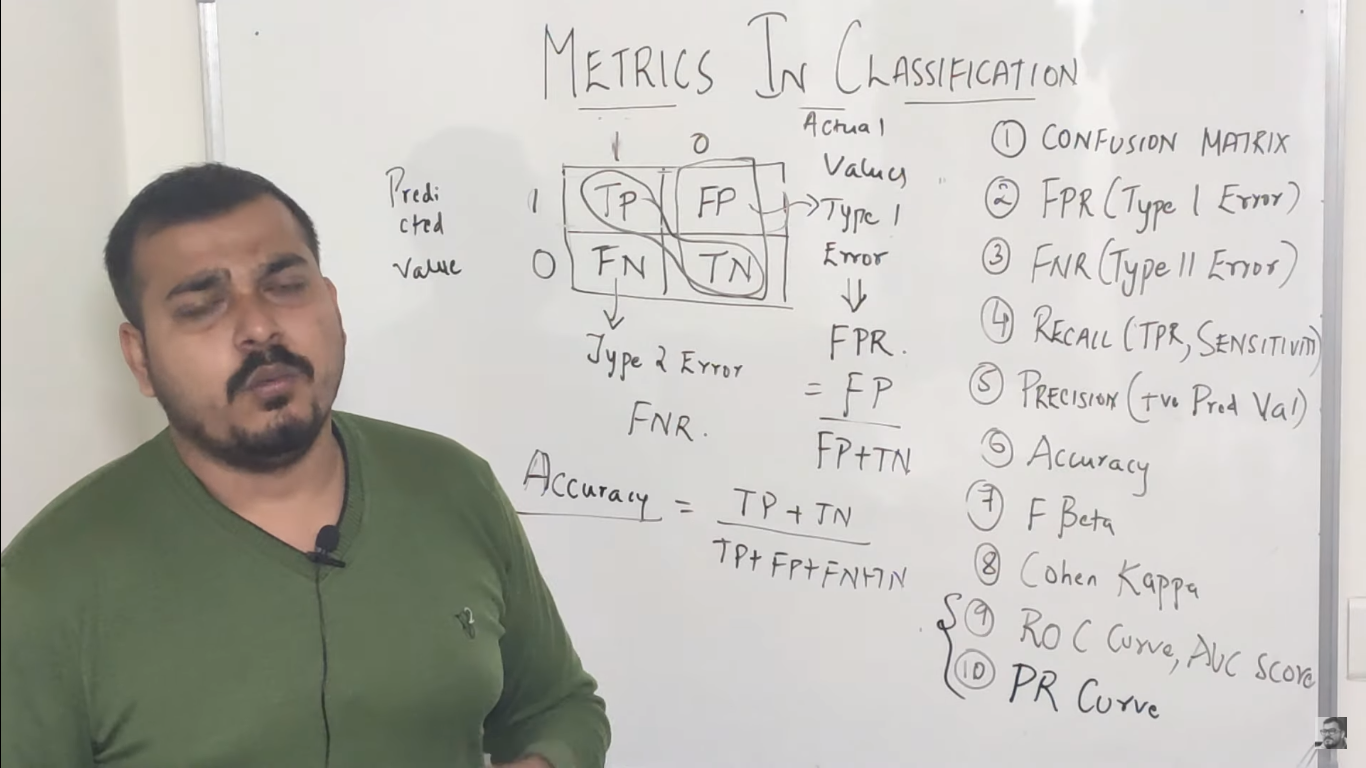 METRICS IN CLASSIFICATION
Actual
Values
1 0
Predi
cted
Value
1 TP FP
0 FN TN
Type 1
Error
FPR.
= FP
FP+TN
Type 2 Error
FNR.
Accuracy = TP + TN
TP+FP+FN+TN
① CONFUSION MATRIX
② FPR (Type I Error)
③ FNR (Type II Error)
④ RECALL (TPR, SENSITIVITY)
⑤ PRECISION (+ve Pred Val)
⑥ Accuracy
⑦ F Beta
⑧ Cohen Kappa
⑨ ROC Curve, AUC SCORE
⑩ PR Curve